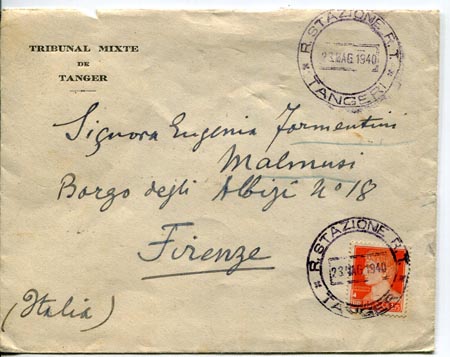 TRIBUNAL MIXTE
DE
TANGER
R. STAZIONE R.T.
23 MAG. 1940
TANGERI
Signora Eugenia Formentini
Malmusi
Borgo degli Albizi N° 18
Firenze
(Italia)
R. STAZIONE R.T.
23 MAG. 1940
TANGERI